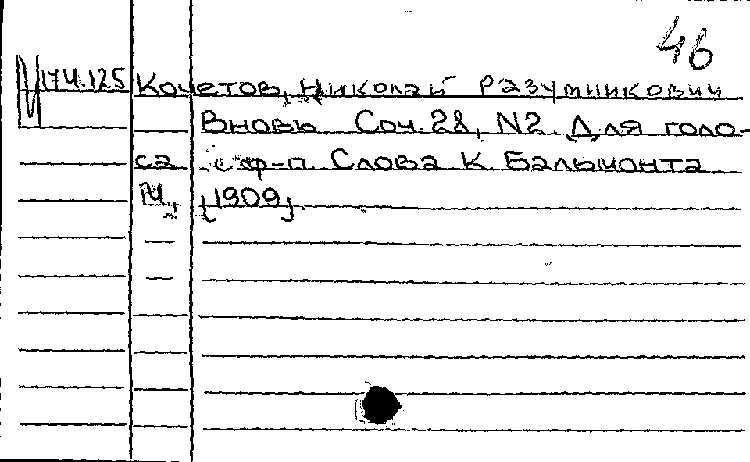 46
174.125 Кочетов, Николай Разумникович
Вновь Соч. 28, N2. Для голо-
са с ф-п. Слова К. Бальмонта
М., [1909]